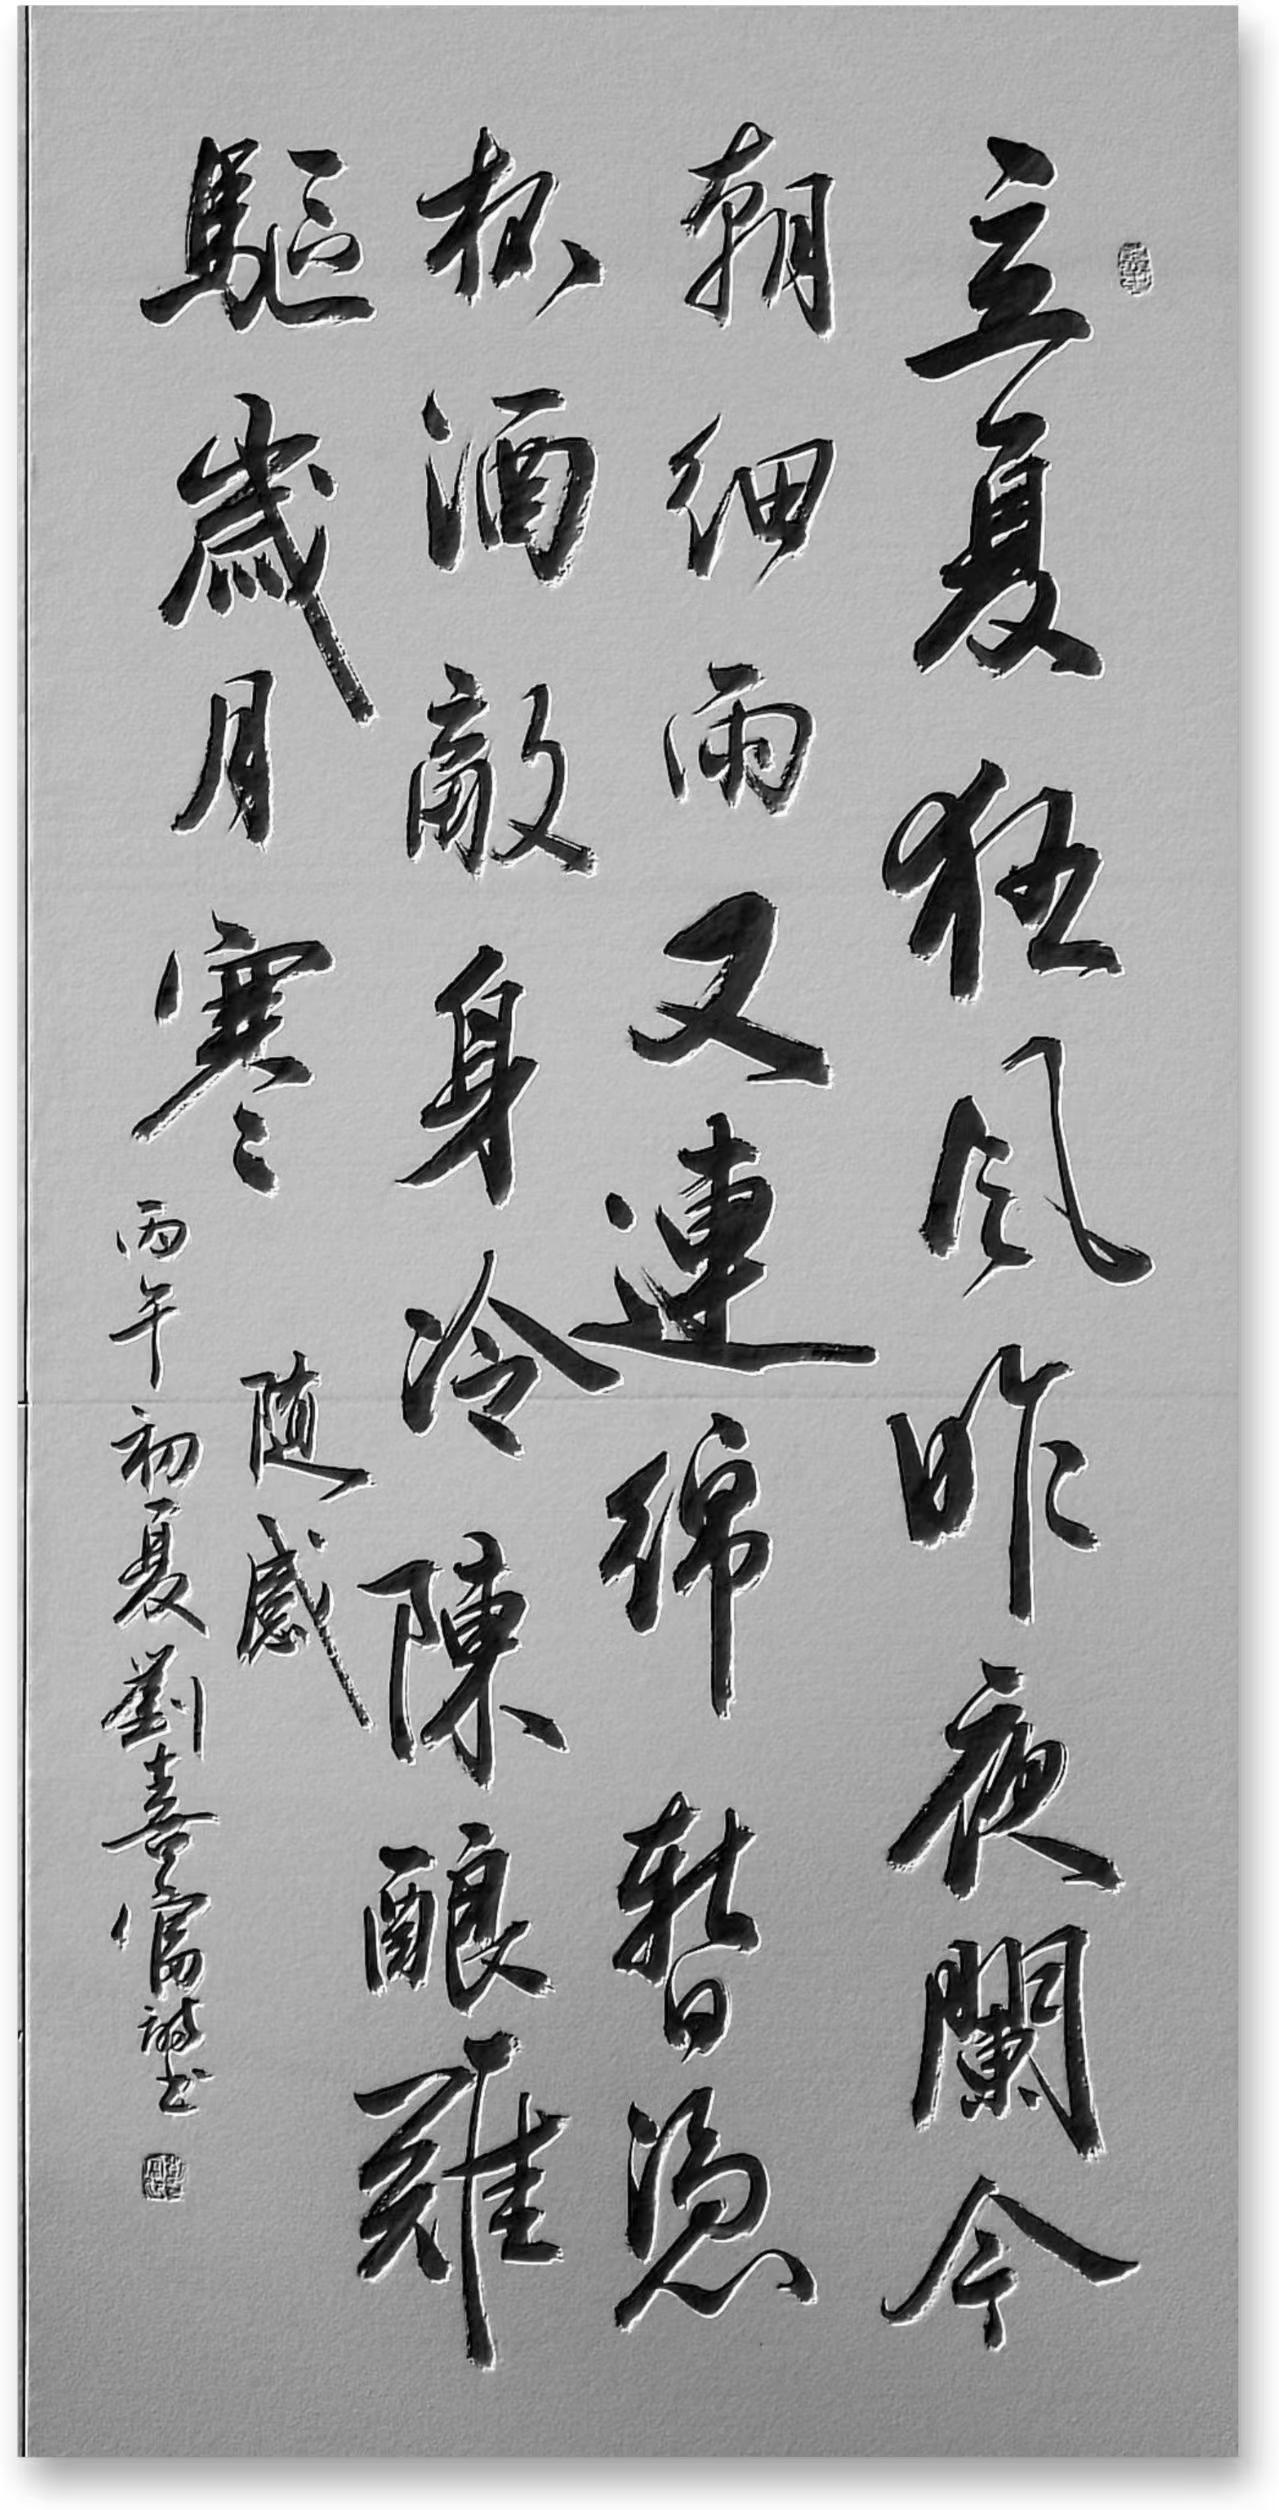 立夏狂風昨夜闌今
朝細雨又連綿暫憑
杯酒敵身冷陳釀難
驅歲月寒〻
随感
丙午初夏劉喜富詩书